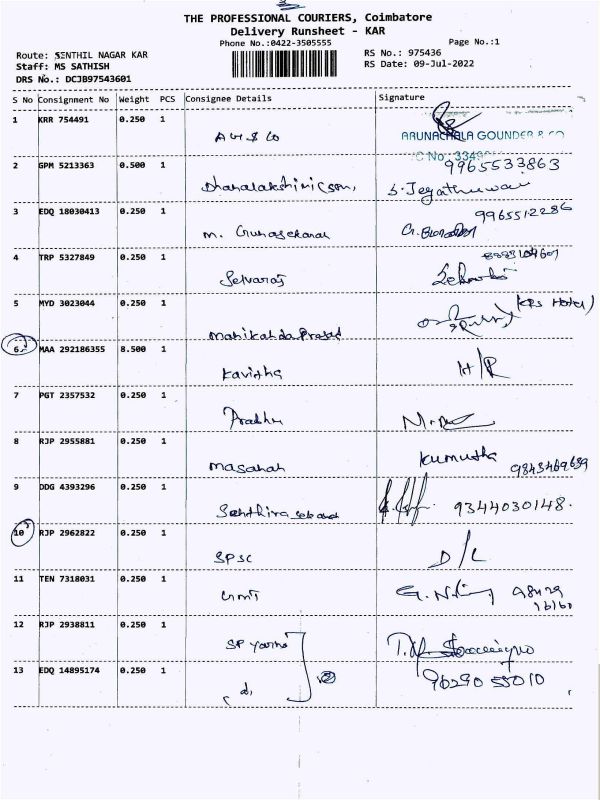 THE PROFESSIONAL COURIERS, Coimbatore
Delivery Runsheet - KAR
Phone No.:0422-3505555
Page No.:1
Route: SENTHIL NAGAR KAR
RS No.: 975436
Staff: MS SATHISH
RS Date: 09-Jul-2022
DRS No.: DCJB97543601
S No Consignment No Weight PCS Consignee Details Signature
1 KRR 754491 0.250 1
ARUNACHALA GOUNDER & CO
2 GPM 5213363 0.500 1 9965533863
3 EDQ 18030413 0.250 1 9965512286
M. Gunasekaran
4 TRP 5327849 0.250 1
Selvaraj
5 MYD 3023044 0.250 1 (KRS Hotel)
6 MAA 292186355 8.500 1
Kavitha H/R
7 PGT 2357532 0.250 1
Prabhu
8 RJP 2955881 0.250 1 Kumutha
9 DDG 4393296 0.250 1 9344030148.
10 RJP 2962822 0.250 1
SPSC D/L
11 TEN 7318031 0.250 1
12 RJP 2938811 0.250 1
SP Yarns
13 EDQ 14895174 0.250 1 9629055010